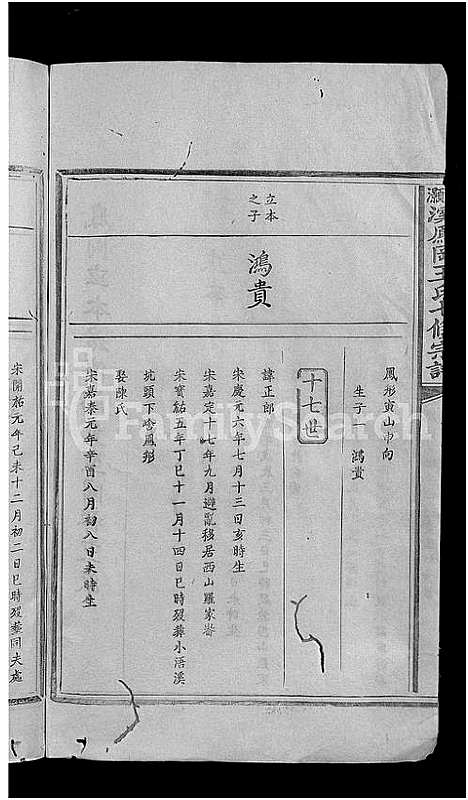 灝溪鳳岡王氏七修宗譜
鳳形寅山申向
生子一 鴻貴
十七世
立本
之子
鴻貴
諱正郎
宋慶元六年七月十三日亥時生
宋嘉定十七年九月避亂移居西山羅家
宋寶祐五年丁巳十一月十四日巳時歿葬小浯溪
坑頭下㟅鳳形
娶陳氏
宋嘉泰元年辛酉八月初八日未時生
宋開祐元年己未十二月初二日巳時歿葬同夫處
FamilySearch